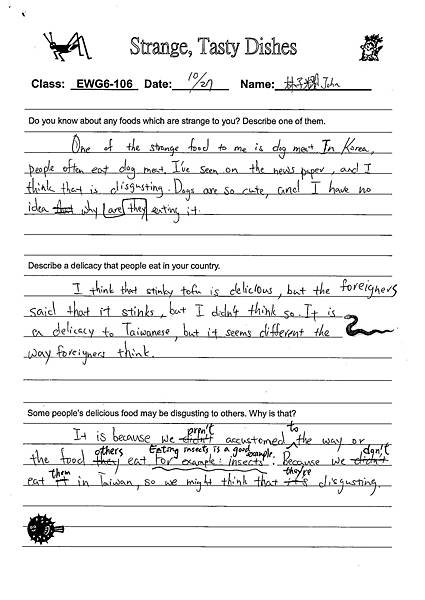 Strange, Tasty Dishes
Class: EWG6-106 Date: 10/27 Name: 林子 John
Do you know about any foods which are strange to you? Describe one of them.
One of the strange food to me is dog meat. In Korea,
people often eat dog meat. I've seen on the news paper, and I
think that is disgusting. Dogs are so cute, and I have no
idea that why are they eating it.
Describe a delicacy that people eat in your country.
I think that stinky tofu is delicious, but the foreigners
said that it stinks, but I didn't think so. It is
a delicacy to Taiwanese, but it seems different the
way foreigners think.
Some people's delicious food may be disgusting to others. Why is that?
aren't to
It is because we didn't accustomed the way or
others Eating insects is a good example. don't
the food they eat For example: insects. Because we didn't
them they're
eat it in Taiwan, so we might think that it's disgusting.